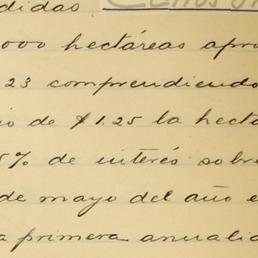 didas
000 hectáreas apro
23 comprendiendo
io de $1.25 la hecta
5% de interés sobre
de mayo del año e
a primera anualid